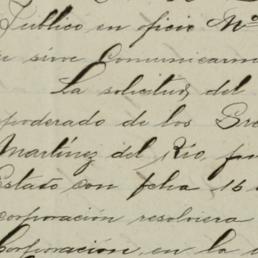 Publico en oficio Nº
se sirve Comunicarm
La solicitud del
apoderado de los Sre
Martinez del Rio, for
Estado con fcha 16
corporación resolviera
Corporación, en la